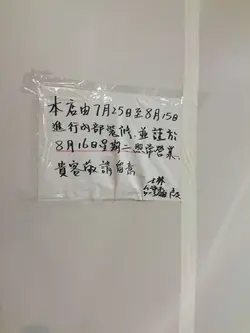 本店由7月25日至8月15日
進行內部裝修,並謹於
8月16日星期二照常營業、
貴客敬請留意